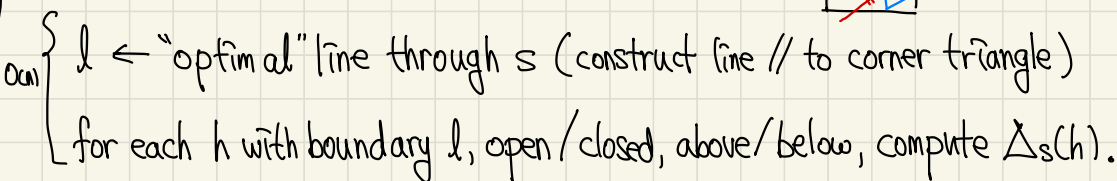 l ← "optimal" line through s (construct line // to corner triangle)
O(n)
for each h with boundary l, open/closed, above/below, compute Δs(h).